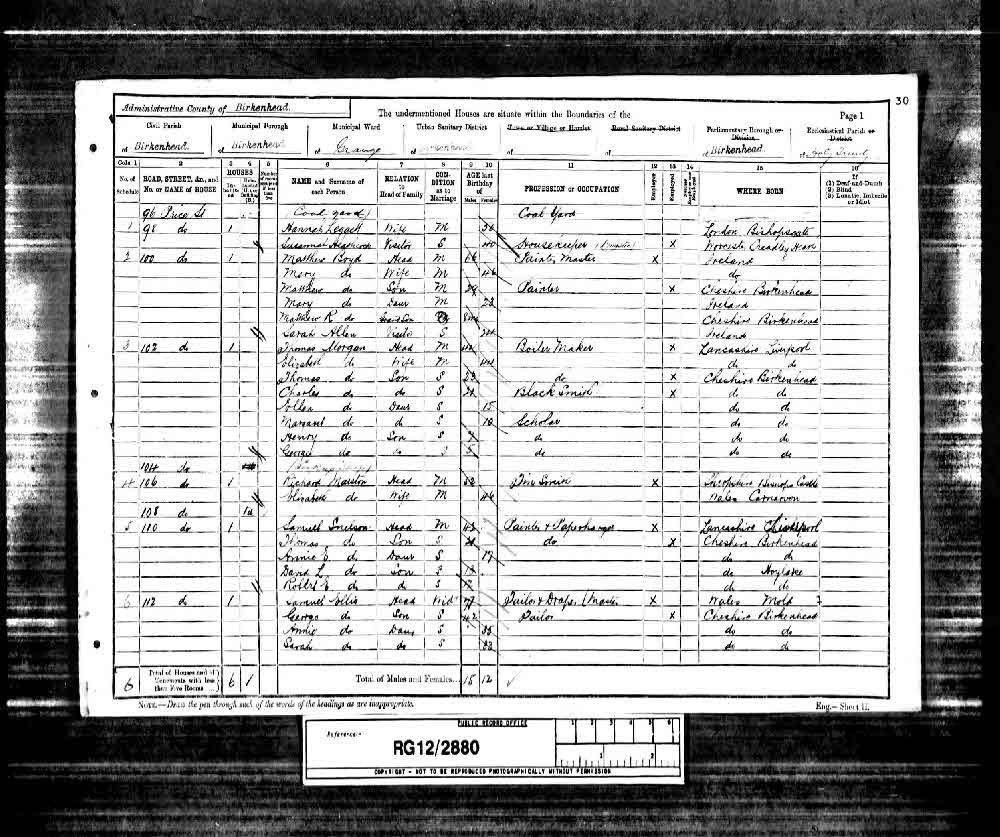 30
Administrative County of Birkenhead
The undermentioned Houses are situate within the Boundaries of the
Page 1
Civil Parish Municipal Borough Municipal Ward Urban Sanitary District Town or Village or Hamlet Rural Sanitary District Parliamentary Borough or Division Ecclesiastical Parish or District
of Birkenhead of Birkenhead of Grange of of of of Birkenhead of Holy Trinity
Cols 1 2 3 4 5 6 7 8 9 10 11 12 13 14 15 16
No. of Schedule ROAD, STREET, &c., and No. or NAME of HOUSE HOUSES NAME and Surname of each Person RELATION to Head of Family CONDITION as to Marriage AGE last Birthday of Males Females PROFESSION or OCCUPATION Employer Employed WHERE BORN
(1) Deaf-and-Dumb
(2) Blind
(3) Lunatic, Imbecile or Idiot
96 Price St (Coal yard) Coal Yard
1 98 do 1 Hannah Wife M London Bishopsgate
Susannah Visitor S 40 Housekeeper x Worcester
2 100 do 1 Matthew Boyd Head M 66 Painter Master x Ireland
Mary do Wife M 46 do
Matthew do Son M 24 Painter x Cheshire Birkenhead
Mary do Daur M 23 Ireland
Matthew R do Grand Son Cheshire Birkenhead
Sarah Allen Visitor S Ireland
3 102 do 1 Thomas Morgan Head M Boiler Maker x Lancashire Liverpool
Elizabeth do Wife M 44 do do
Thomas do Son S 23 do x Cheshire Birkenhead
Charles do do S 21 Black Smith x do do
Ellen do Daur S 15 do do
Margaret do d S 10 Scholar do do
Henry do Son S 7 do do do
George do do S 5 do do do
104 do
4 106 do 1 Richard Marston Head M 52 Tin Smith x Shropshire Bishops Castle
Elizabeth do Wife M 46 Wales Carnarvon
108 do 1u
5 110 do 1 Samuel Snelson Head M 43 Painter & Paperhanger x Lancashire Liverpool
Thomas do Son S 21 do x Cheshire Birkenhead
Annie E. do Daur S 17 do do
David L. do Son S do Hoylake
Robert E. do d S 12 do do
6 112 do 1 Samuel Ellis Head Wid Tailor & Draper (Master x Wales Mold
George do Son S 42 Tailor x Cheshire Birkenhead
Annie do Daur S 35 do do
Sarah do do S 33 do do
6 Total of Houses and of Tenements with less than Five Rooms 6 1 Total of Males and Females... 15 12
NOTE.—Draw the pen through such of the words of the headings as are inappropriate.
Eng.—Sheet H.
PUBLIC RECORD OFFICE
1 2 3 4 5 6
Reference:-
RG12/2880
1 2
COPYRIGHT - NOT TO BE REPRODUCED PHOTOGRAPHICALLY WITHOUT PERMISSION